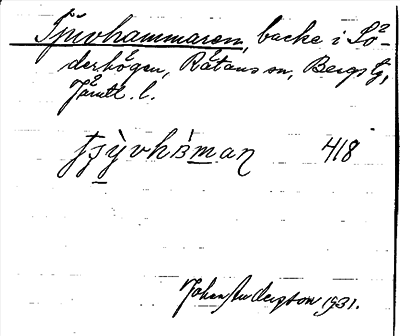 Tjuvhammaren, backe i Sö-
derhögen, Rätans sn, Bergs tg,
Jämtl. l.
418
Johan Anderzson 1931.